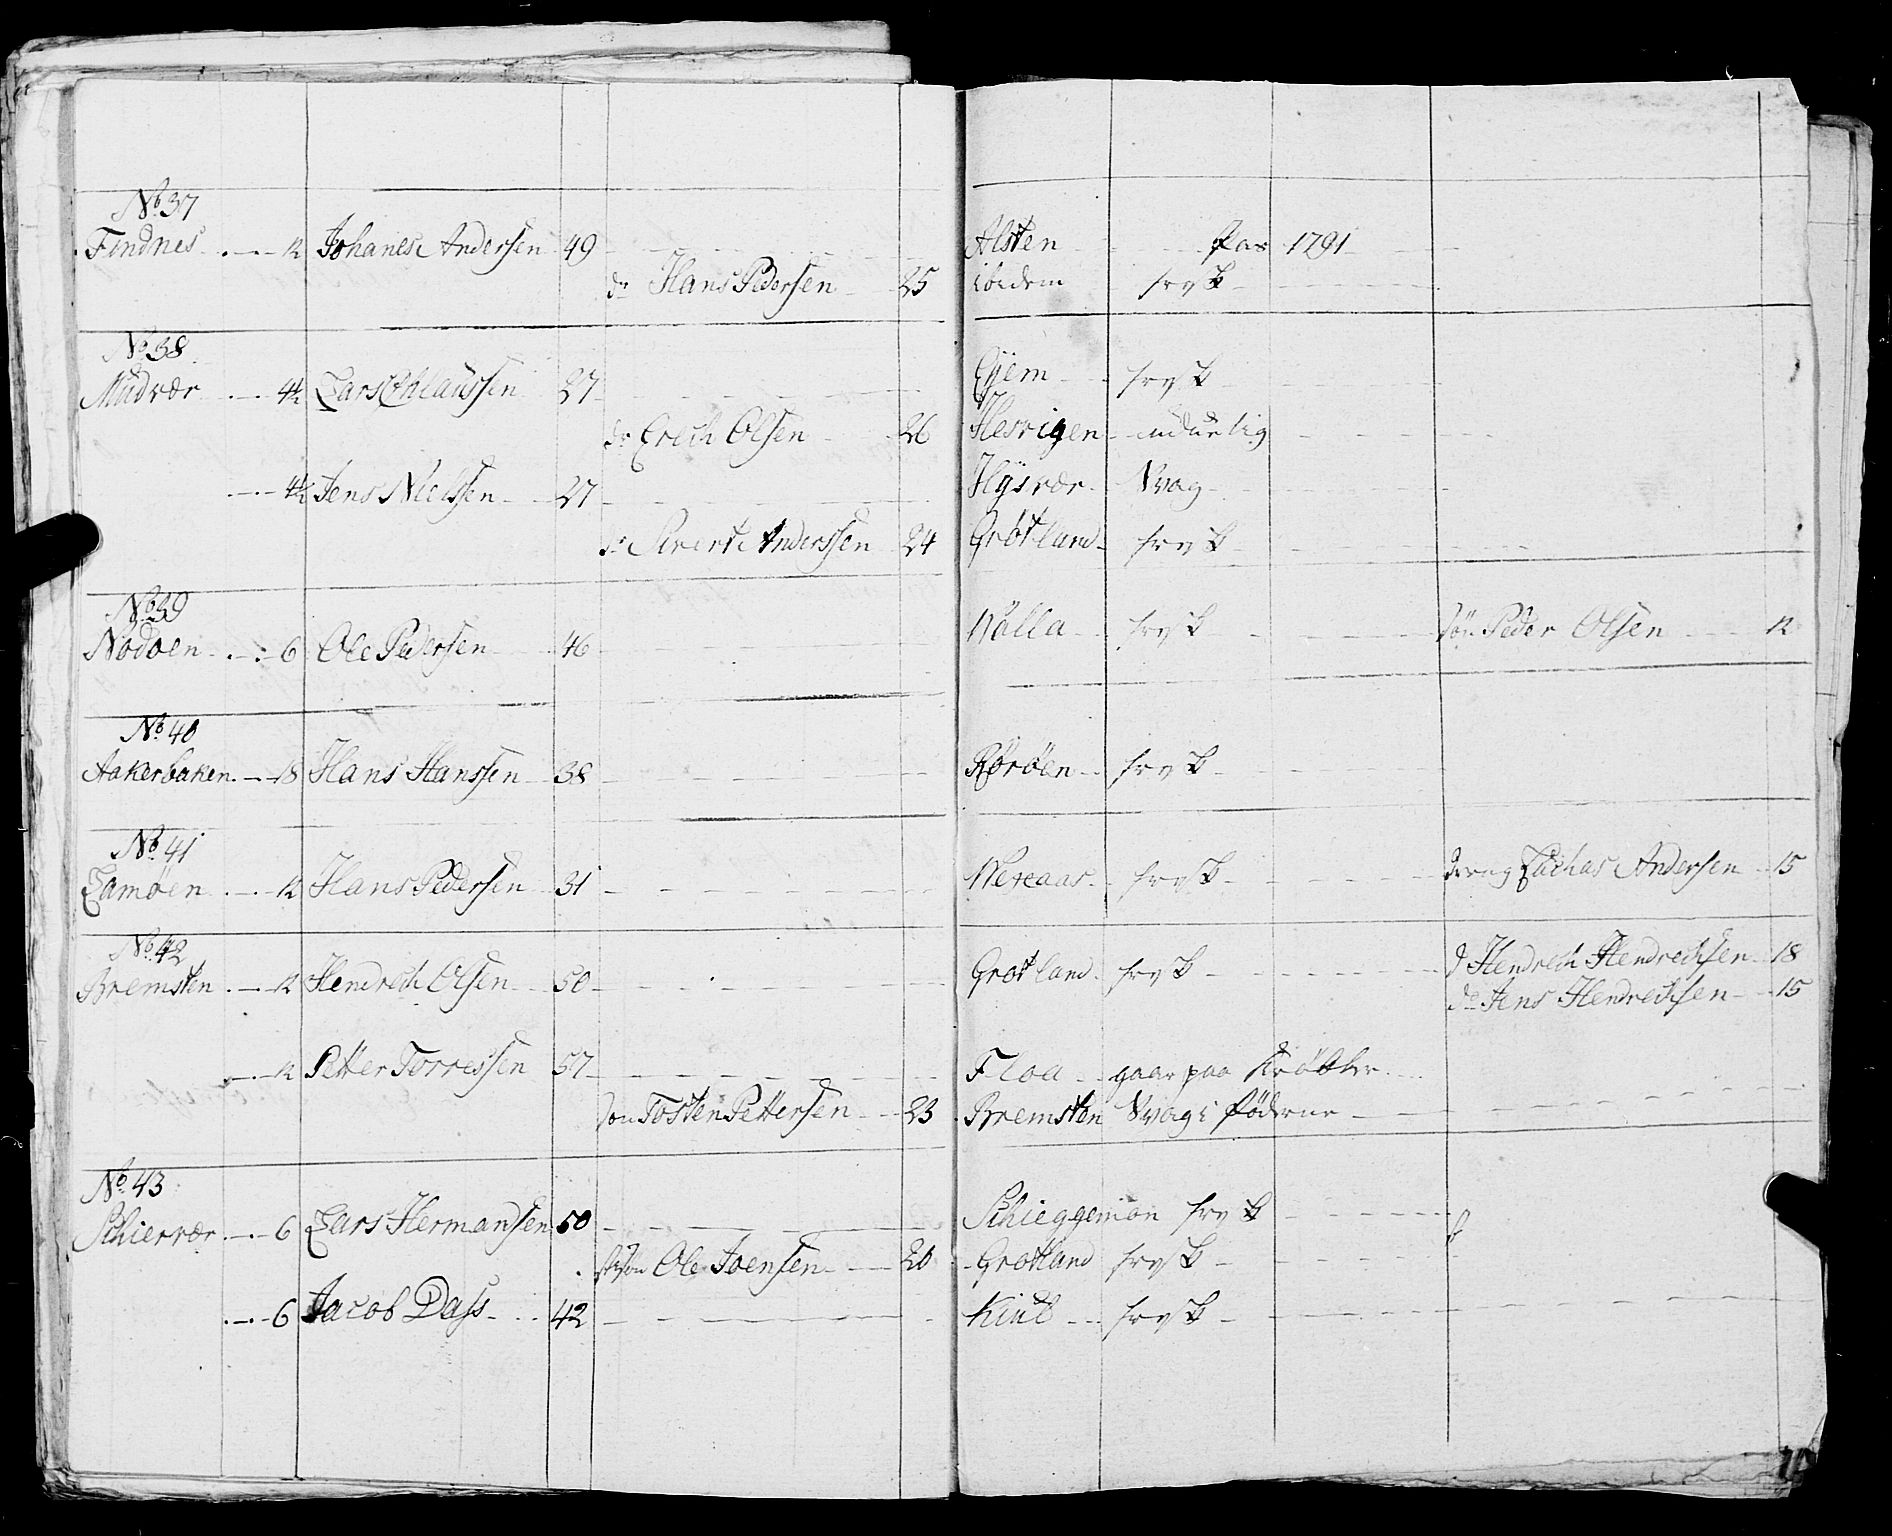 No 37
Findnes 12 Johanes Andersen 49 Alsten Pas 1791
do Hans Pedersen 25 ibidem frysk
No 38
Mudvær 4½ Lars Chlaussen 27 Eyem frysk
do Erich Olsen 26 Hesvigen uduelig
4½ Jens Nielssen 27 Hysvær Svag
do Sivert Anderssen 24 Grøtland frysk
No 39
Nødøen 6 Ole Pedersen 46 Walla frysk søn Peder Olsen 12
No 40
Aakerbaken 18 Hans Hanssen 38 Rørøen frysk
No 41
Lamøen 12 Hans Pedersen 31 frysk dreng Zachas Andersen 15
No 42
Bremsten 12 Hendrich Olsen 50 Grøtland frysk d Hendrich Hendrechsen 18
do Jens Hendrechsen 15
12 Petter Torressen 57 Floa gaar paa Krøbler
søn Tosten Pettersen 23 Bremsten Svag i Føderne
No 43
Schiervær 6 Lars Hermansen 50 frysk
stsøn Ole Joensen 20 Grøtland frysk
6 Jacob Dass 42 frysk